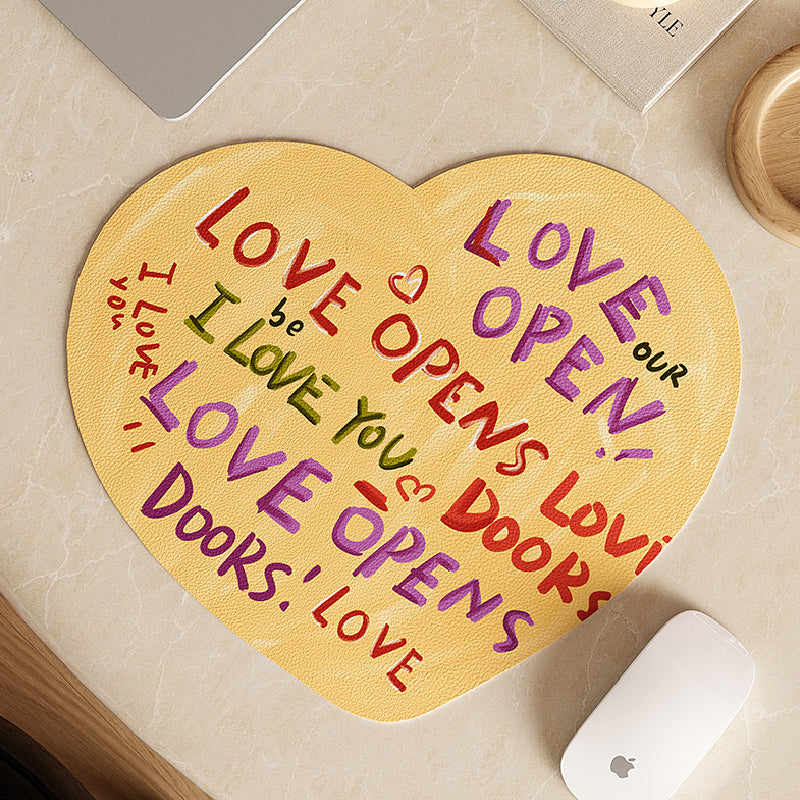 YLE
LOVE OPENS DOORS
LOVE
OPEN!
OUR
I LOVE
you
be
I LOVE YOU
LOVE OPENS
DOORS!
LOVE
LOVI
DOORS